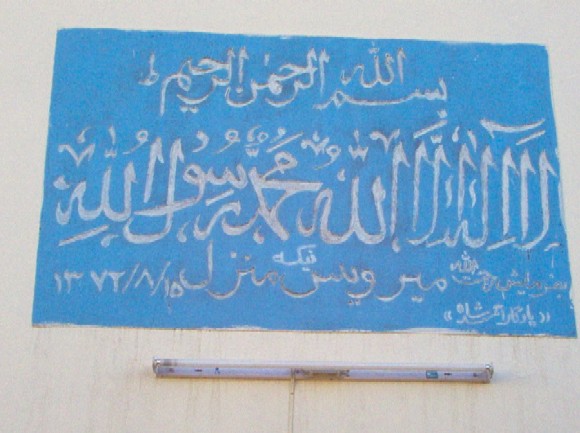 بسم الله الرحمن الرحیم ط
لا اله الا الله محمد رسول الله
میر ویس نیکه منزل ۱۳۷۲/۸/۱۵